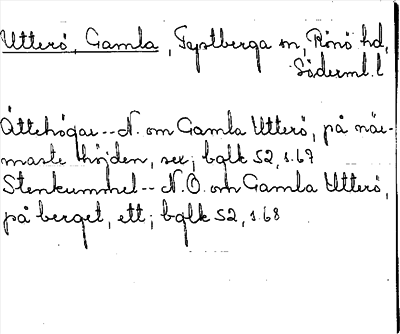 Utterö, Gamla, Tystberga sn, Rönö hd,
Söderml. l
Ättehögar -- N. om Gamla Utterö, på när-
maste höjden, sex; bglk 52, s. 67
Stenkummel -- N.O. om Gamla Utterö,
på berget, ett; bglk 52, s. 68